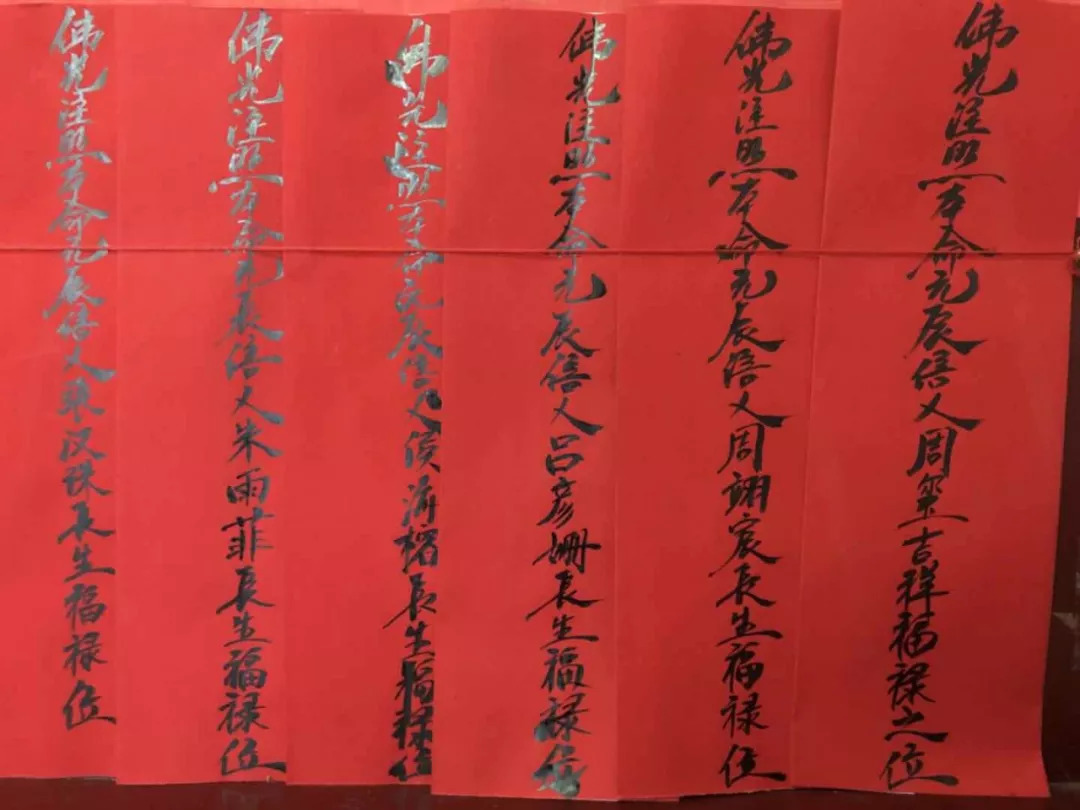 佛光注照本命元辰信人周玺吉祥福禄之位
佛光注照本命元辰信人周翊宸长生福禄位
佛光注照本命元辰信人吕彦姗长生福禄位
佛光注照本命元辰信人侯济榕长生福禄位
佛光注照本命元辰信人朱雨菲长生福禄位
佛光注照本命元辰信人张汉珠长生福禄位